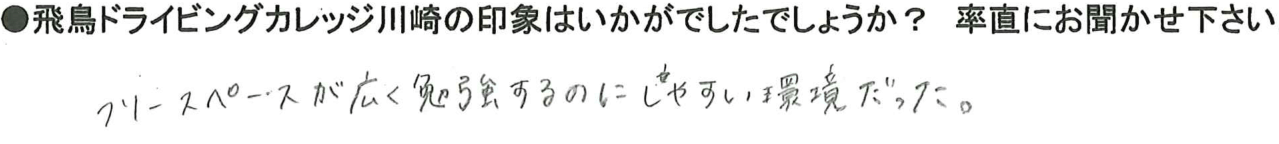 ●飛鳥ドライビングカレッジ川崎の印象はいかがでしたでしょうか？ 率直にお聞かせ下さい
フリースペースが広く勉強するのにしやすい環境だった。